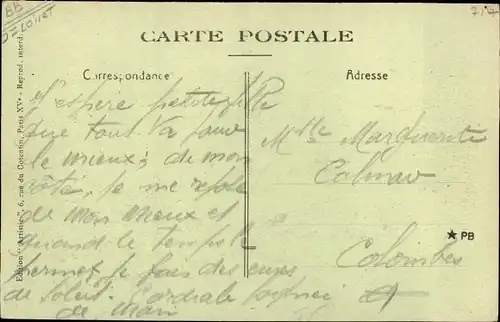 BB
Loiret
CARTE POSTALE
Correspondance
Adresse
J'espère petite fille
que tout va pour
le mieux; de mon
côté, je me repose
de mon mieux et
quand le temps le
permet je fais des cures
de Soleil. Cordiale
de
Mlle Marguerite
Colombes
★ PB
Edition "Artistic" 6, rue du Cotentin, Paris XVe - Reprod. interd.